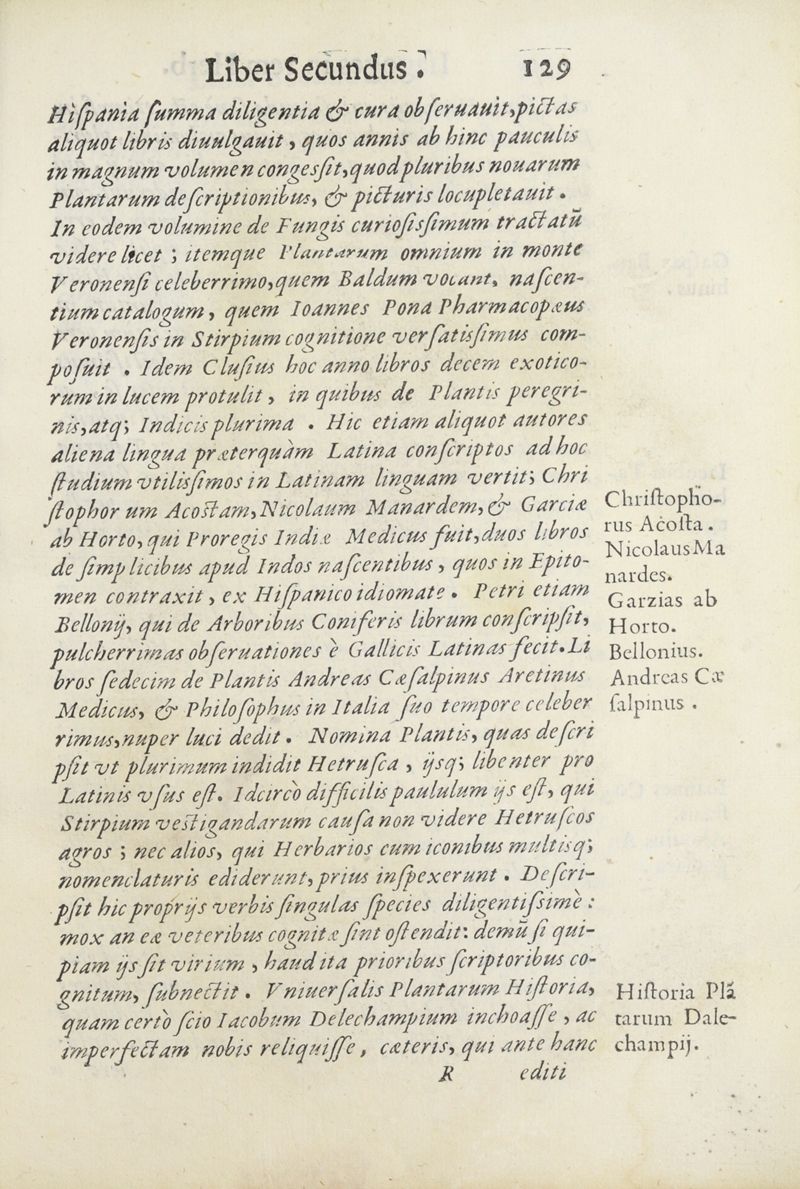 Liber Secundus. 129
Hiſpania ſumma diligentia & cura obſeruauit, pictas
aliquot libris diuulgauit, quos annis ab hinc pauculis
in magnum volumen congesſit, quod pluribus nouarum
Plantarum deſcriptionibus, & picturis locupletauit.
In eodem volumine de Fungis curioſisſimum tractatū
videre licet; itemque Plantarum omnium in monte
Veronenſi celeberrimo, quem Baldum vocant, naſcen-
tium catalogum, quem Ioannes Pona Pharmacopæus
Veronenſis in Stirpium cognitione verſatisſimus com-
poſuit. Idem Cluſius hoc anno libros decem exotico-
rum in lucem protulit, in quibus de Plantis peregri-
nis, atq; Indicis plurima. Hic etiam aliquot autores
aliena lingua præterquàm Latina conſcriptos ad hoc
ſtudium vtilisſimos in Latinam linguam vertit; Chri
ſtophorum Acoſtam, Nicolaum Manardem, & Garciæ
ab Horto, qui Proregis Indiæ Medicus fuit, duos libros
de ſimplicibus apud Indos naſcentibus, quos in Epito-
men contraxit, ex Hiſpanico idiomate. Petri etiam
Bellonij, qui de Arboribus Coniferis librum conſcripſit,
pulcherrimas obſeruationes è Gallicis Latinas fecit. Li
bros ſedecim de Plantis Andreas Cæſalpinus Aretinus
Medicus, & Philoſophus in Italia ſuo tempore celeber
rimus, nuper luci dedit. Nomina Plantis, quas deſcri
pſit vt plurimum indidit Hetruſca, ijsq; libenter pro
Latinis vſus eſt. Idcircò difficilis paululum ijs eſt, qui
Stirpium veſtigandarum cauſa non videre Hetruſcos
agros; nec alios, qui Herbarios cum iconibus multisq;
nomenclaturis ediderunt, prius inſpexerunt. Deſcri-
pſit hic proprijs verbis ſingulas ſpecies diligentiſsimè:
mox an eæ veteribus cognitæ ſint oſtendit: demū ſi qui-
piam ijs ſit virium, haud ita prioribus ſcriptoribus co-
gnitum, ſubnectit. Vniuerſalis Plantarum Hiſtoria,
quam certò ſcio Iacobum Delechampium inchoaſſe, ac
imperfectam nobis reliquiſſe, cæteris, qui ante hanc
R editi
Chriſtopho-
rus Acoſta.
Nicolaus Ma
nardes.
Garzias ab
Horto.
Bellonius.
Andreas Cæ
ſalpinus.
Hiſtoria Plā
tarum Dale-
champij.